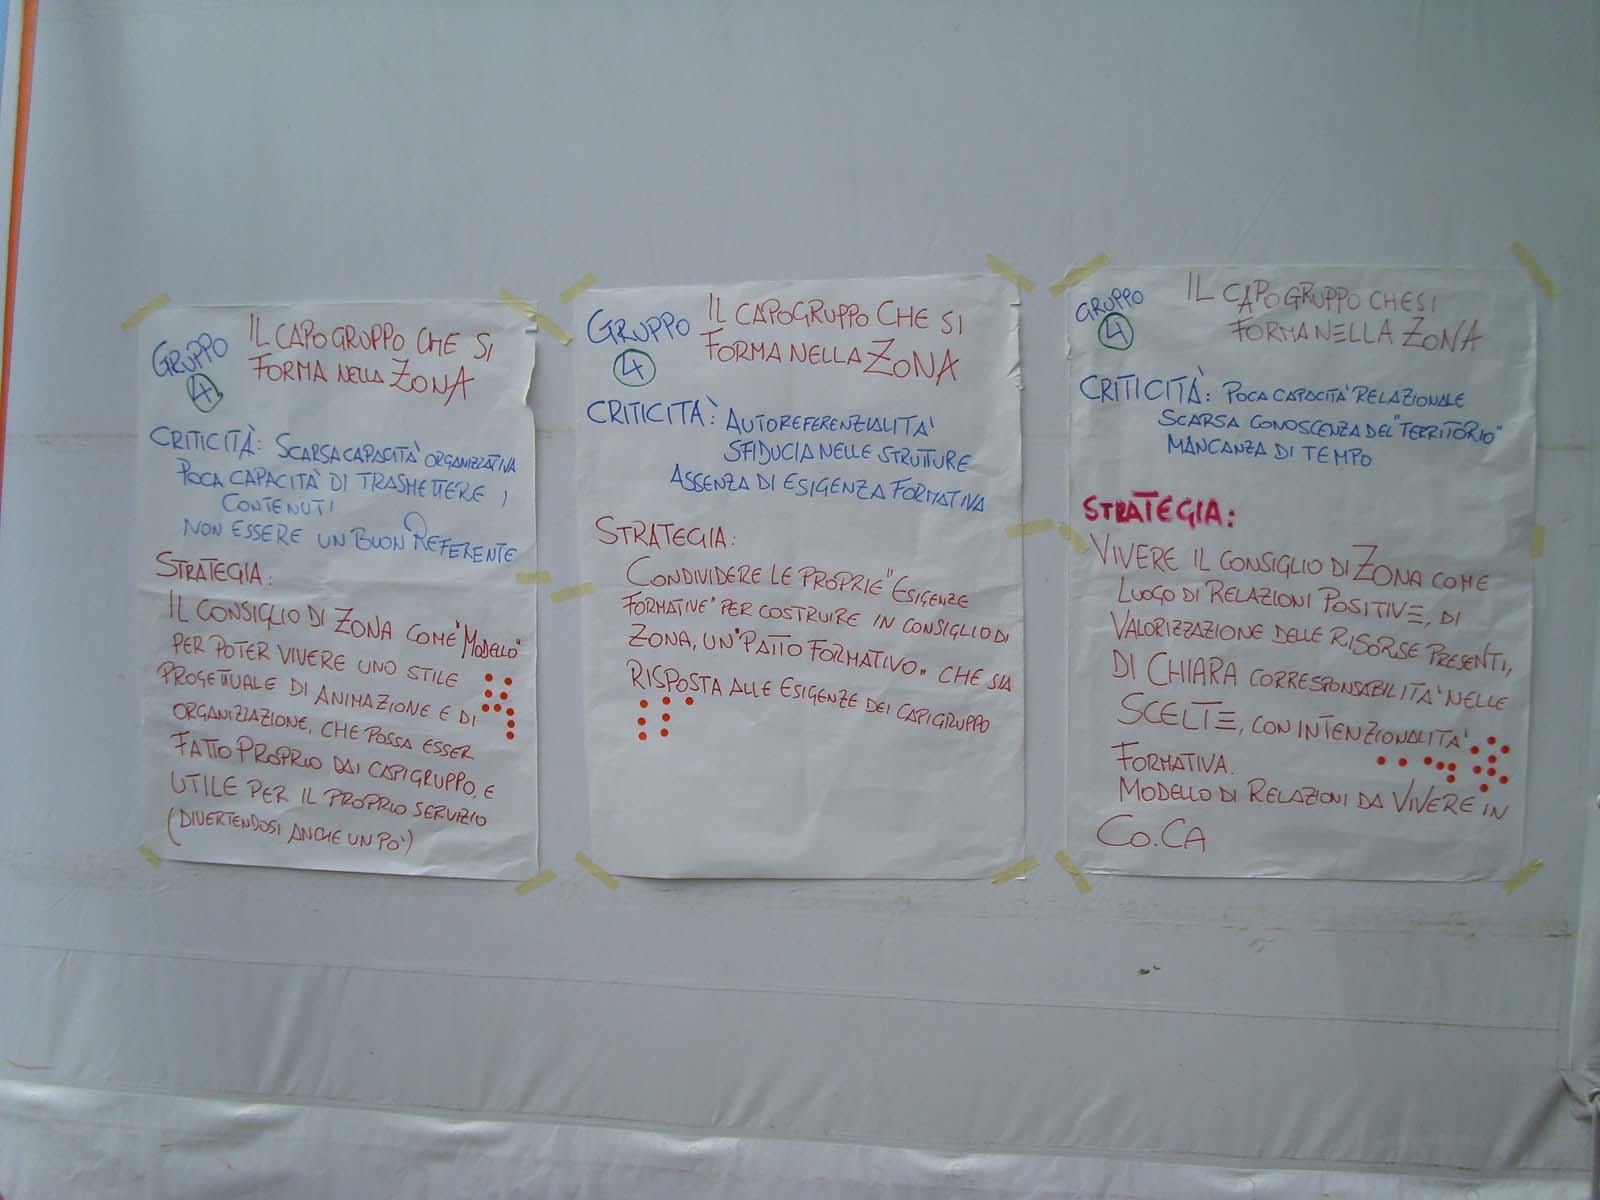 GRUPPO
4
IL CAPOGRUPPO CHE SI
FORMA NELLA ZONA
CRITICITÀ: SCARSA CAPACITÀ ORGANIZZATIVA
POCA CAPACITÀ DI TRASMETTERE I
CONTENUTI
NON ESSERE UN BUON REFERENTE
STRATEGIA:
IL CONSIGLIO DI ZONA COME "MODELLO"
PER POTER VIVERE UNO STILE
PROGETTUALE DI ANIMAZIONE E DI
ORGANIZZAZIONE, CHE POSSA ESSER
FATTO PROPRIO DAI CAPIGRUPPO, E
UTILE PER IL PROPRIO SERVIZIO
(DIVERTENDOSI ANCHE UN PO')
GRUPPO
4
IL CAPOGRUPPO CHE SI
FORMA NELLA ZONA
CRITICITÀ: AUTOREFERENZIALITÀ
SFIDUCIA NELLE STRUTTURE
ASSENZA DI ESIGENZA FORMATIVA
STRATEGIA:
CONDIVIDERE LE PROPRIE "ESIGENZE
FORMATIVE" PER COSTRUIRE IN CONSIGLIO DI
ZONA, UN "PATTO FORMATIVO" CHE SIA
RISPOSTA ALLE ESIGENZE DEI CAPIGRUPPO
GRUPPO
4
IL CAPOGRUPPO CHE SI
FORMA NELLA ZONA
CRITICITÀ: POCA CAPACITÀ RELAZIONALE
SCARSA CONOSCENZA DEL "TERRITORIO"
MANCANZA DI TEMPO
STRATEGIA:
VIVERE IL CONSIGLIO DI ZONA COME
LUOGO DI RELAZIONI POSITIVE, DI
VALORIZZAZIONE DELLE RISORSE PRESENTI,
DI CHIARA CORRESPONSABILITÀ NELLE
SCELTE, CON INTENZIONALITÀ
FORMATIVA.
MODELLO DI RELAZIONI DA VIVERE IN
CO.CA